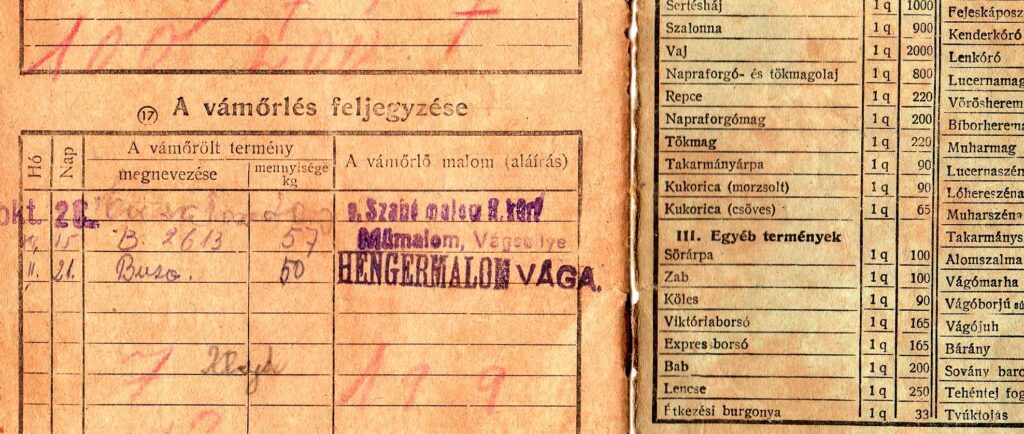 100 200 T
17 A vámőrlés feljegyzése
Hó Nap A vámőrölt termény A vámőrlő malom (aláírás)
megnevezése mennyisége
kg
okt. 28. Szabó malom
15 B. 2613 57 Műmalom, Vágsellye
II. 21. Buza. 50 HENGERMALOM VÁGA.
7 119
Sertésháj 1 q 1000
Szalonna 1 q 900
Vaj 1 q 2000
Napraforgó- és tökmagolaj 1 q 800
Repce 1 q 220
Napraforgómag 1 q 200
Tökmag 1 q 220
Takarmányárpa 1 q 90
Kukorica (morzsolt) 1 q 90
Kukorica (csöves) 1 q 65
III. Egyéb termények
Sörárpa 1 q 100
Zab 1 q 100
Köles 1 q 90
Viktóriaborsó 1 q 165
Expressborsó 1 q 165
Bab 1 q 200
Lencse 1 q 250
Étkezési burgonya 1 q 33
Fejeskáposz
Kenderkóró
Lenkóró
Lucernamag
Vörösherem
Bíborherem
Muharmag
Lucernaszén
Lóhereszéna
Muharszéna
Takarmánys
Alomszalma
Vágómarha
Vágóborjú sú
Vágójuh
Bárány
Sovány baro
Tehéntej fog
Tyúktojás